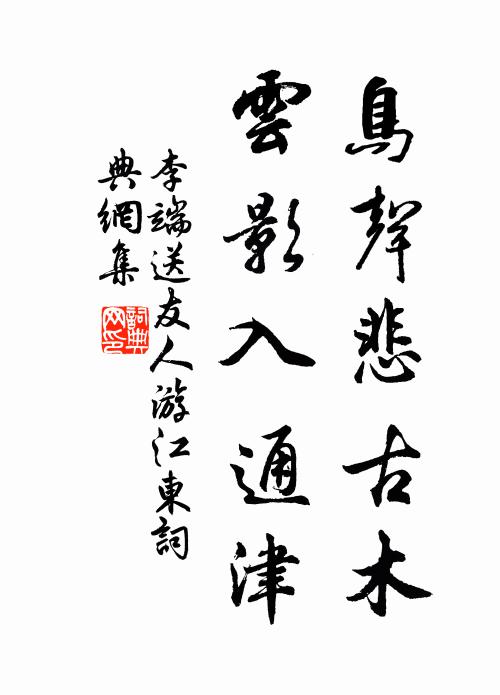 鳥聲悲古木
雲影入通津
李端送友人游江東詞
典網集
詞典
网印